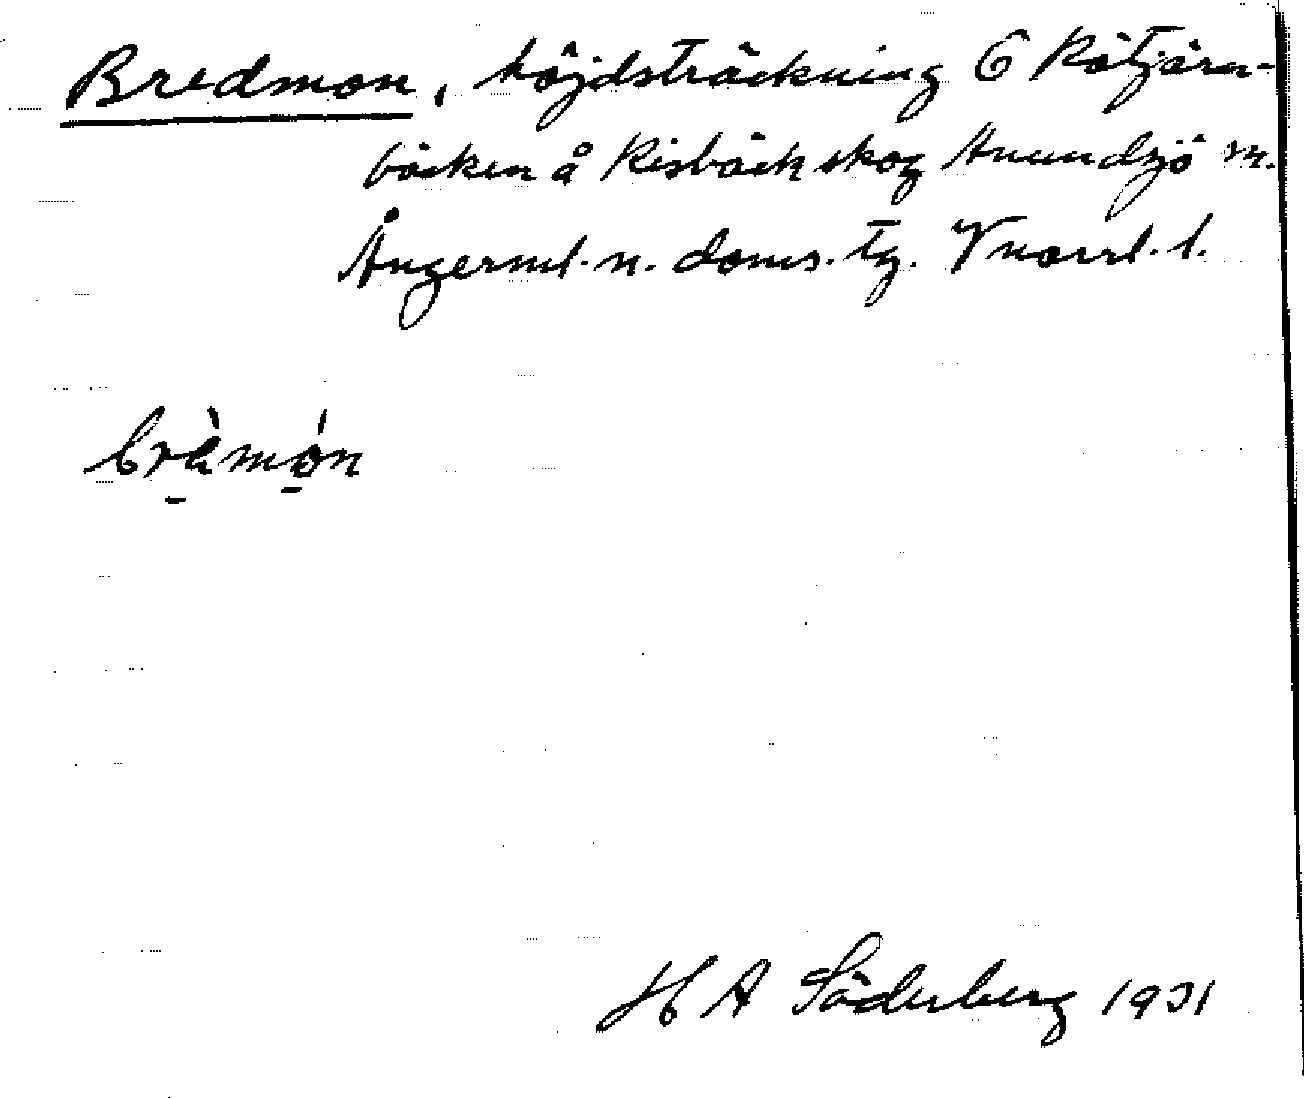 Bredmon, höjdsträckning G Rötjärn-
bäcken å Risbäck skog Anundsjö sn.
Ångerml. n. doms. tg. Vnorrl. l.
bràmo̱n
H A Söderberg 1931